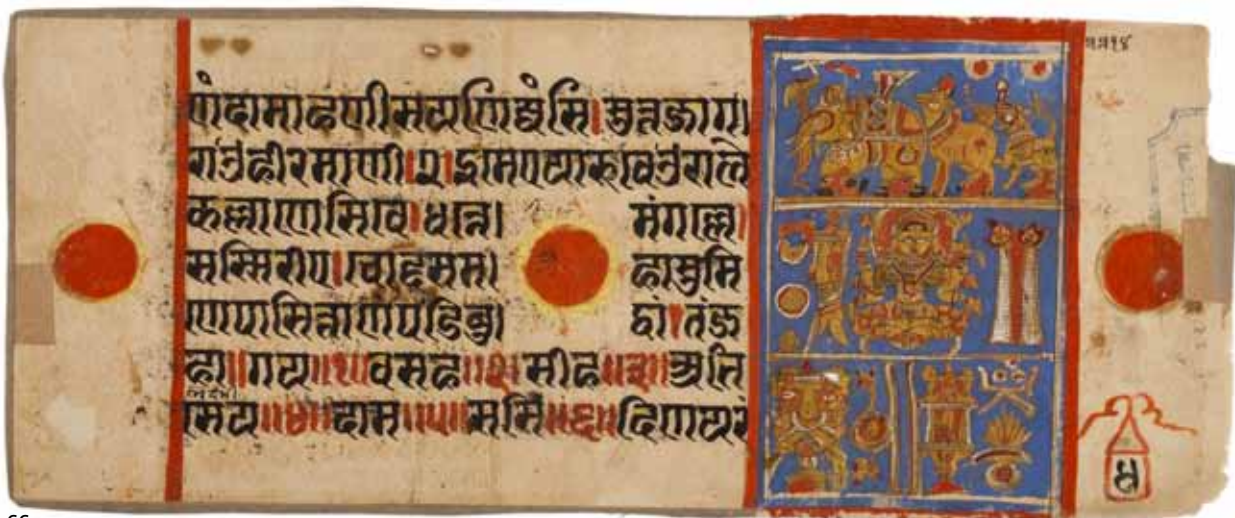 णंदामाहणीसयणिज्जंसि।सुत्तजाग।
राउहीरमाणी।२।इमेएयारूवेउराले
कल्लाणेसिवे।धन्ने। मंगल्ले।
सस्सिरीए।चोद्दसम। हासुमि
णेपासित्ताणंपडिबु। द्धा।तंज
हा॥गय॥१॥वसह॥२॥सीह॥३॥अभि
सेय॥४॥दाम॥५॥ससि॥६॥दिणयरं